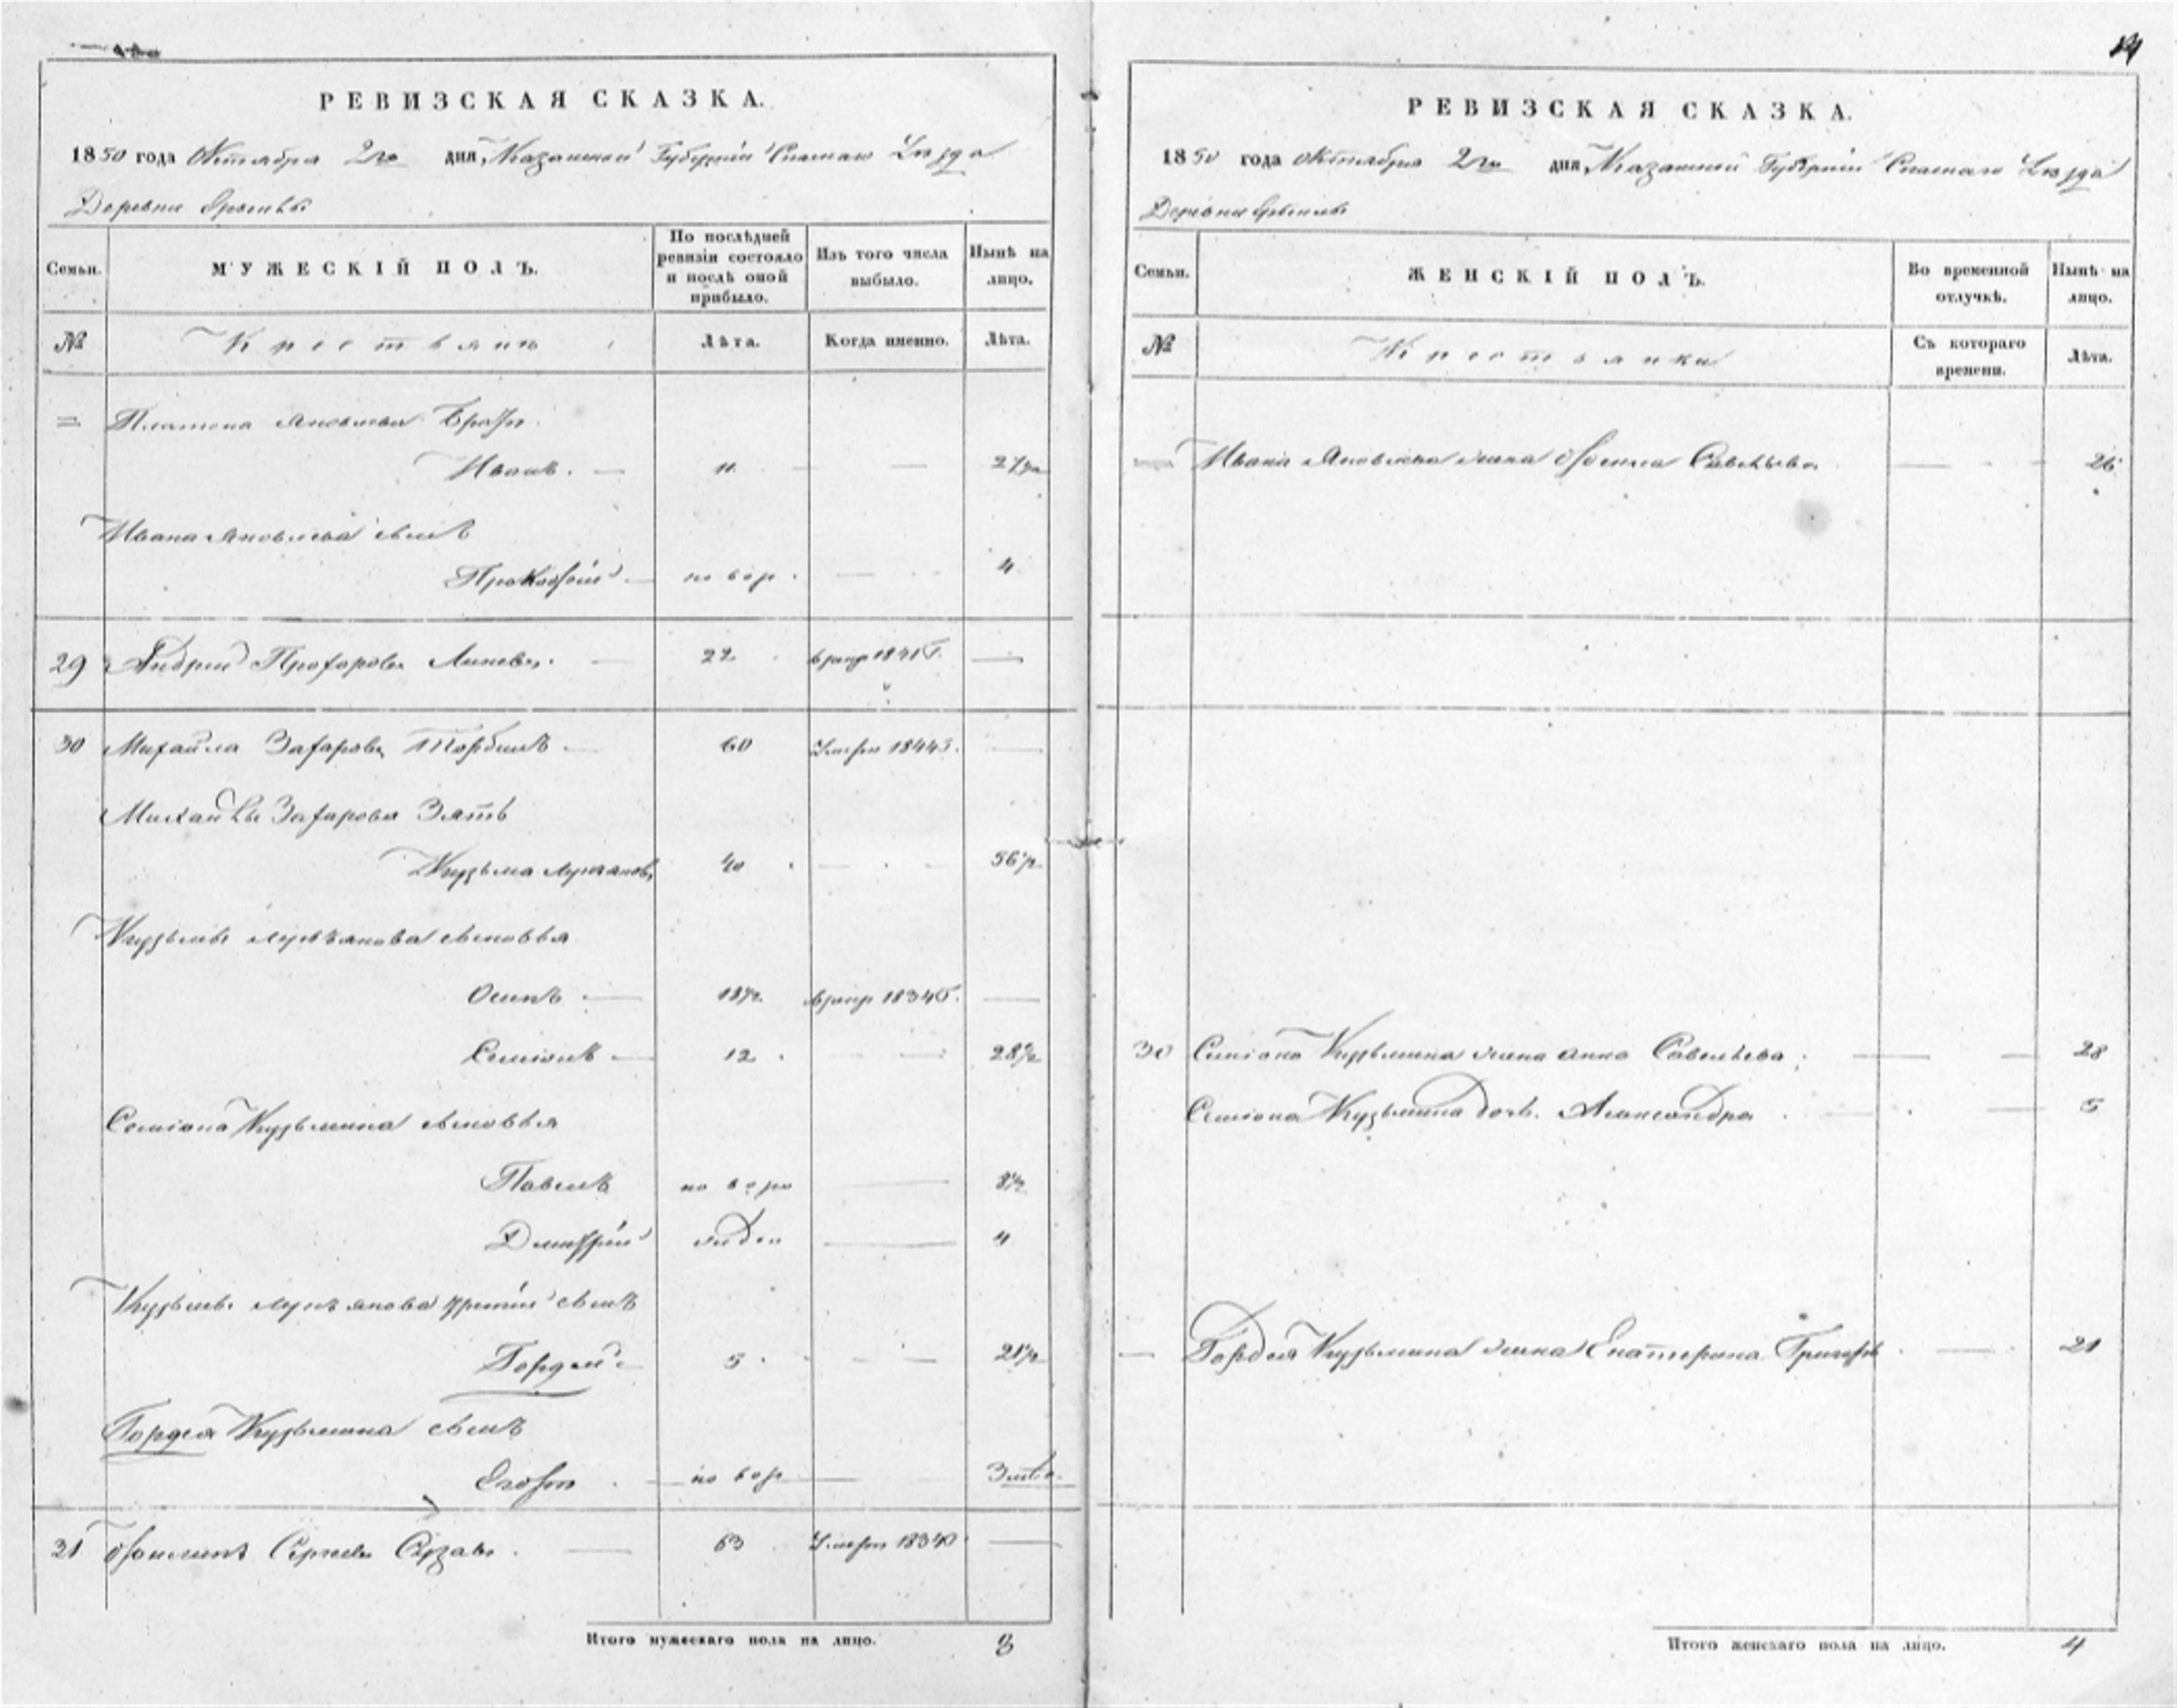 РЕВИЗСКАЯ СКАЗКА.
1850 года Октября 2го дня, Казанской Губерніи Спаскаго Уѣзда
Деревни
Семьи.
МУЖЕСКІЙ ПОЛЪ.
По послѣдней ревизіи состояло и послѣ оной прибыло.
Изъ того числа выбыло.
Нынѣ на лицо.
№
Крестьянъ
Лѣта.
Когда именно.
Лѣта.
Платона Яковлева Братъ
Иванъ. 11 27
Ивана Яковлева сынъ
Прокофій но вор. 4
29 Андрей Прохоровъ 22 1841
30 Михайла Захаровъ 60 Умеръ 1844
Михайлы Захарова Зять
Кузьма Лукьяновъ 40 56
Кузьмы Лукьянова сыновья
Осипъ 18 1834
Семіонъ 12 28
Семіона Кузьмина сыновья
Павелъ но воро 8
Дмитрій 4
Кузьмы Лукьянова третій сынъ
Гордей 5 21
Гордея Кузьмина сынъ
Егоръ но вор 3
31 Филипъ Сергеевъ 63 Умеръ 1834
Итого мужескаго пола на лицо. 8
РЕВИЗСКАЯ СКАЗКА.
1850 года Октября 2го дня, Казанской Губерніи Спаскаго Уѣзда
Деревни
Семьи.
ЖЕНСКІЙ ПОЛЪ.
Во временной отлучкѣ.
Нынѣ на лицо.
№
Крестьянки
Съ котораго времени.
Лѣта.
Ивана Яковлева жена Савельева 26
30 Семіона Кузьмина жена Анна Савельева 28
Семіона Кузьмина дочь Александра 5
Гордея Кузьмина жена Екатерина 21
Итого женскаго пола на лицо. 4